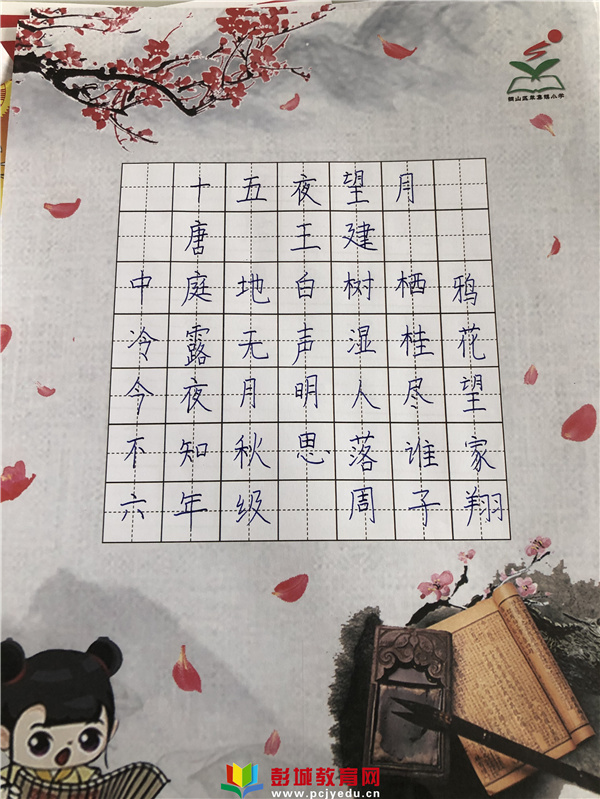 十五夜望月
唐 王建
中庭地白树栖鸦
冷露无声湿桂花
今夜月明人尽望
不知秋思落谁家
六年级 周子翔
彭城教育网
www.pcjyedu.cn